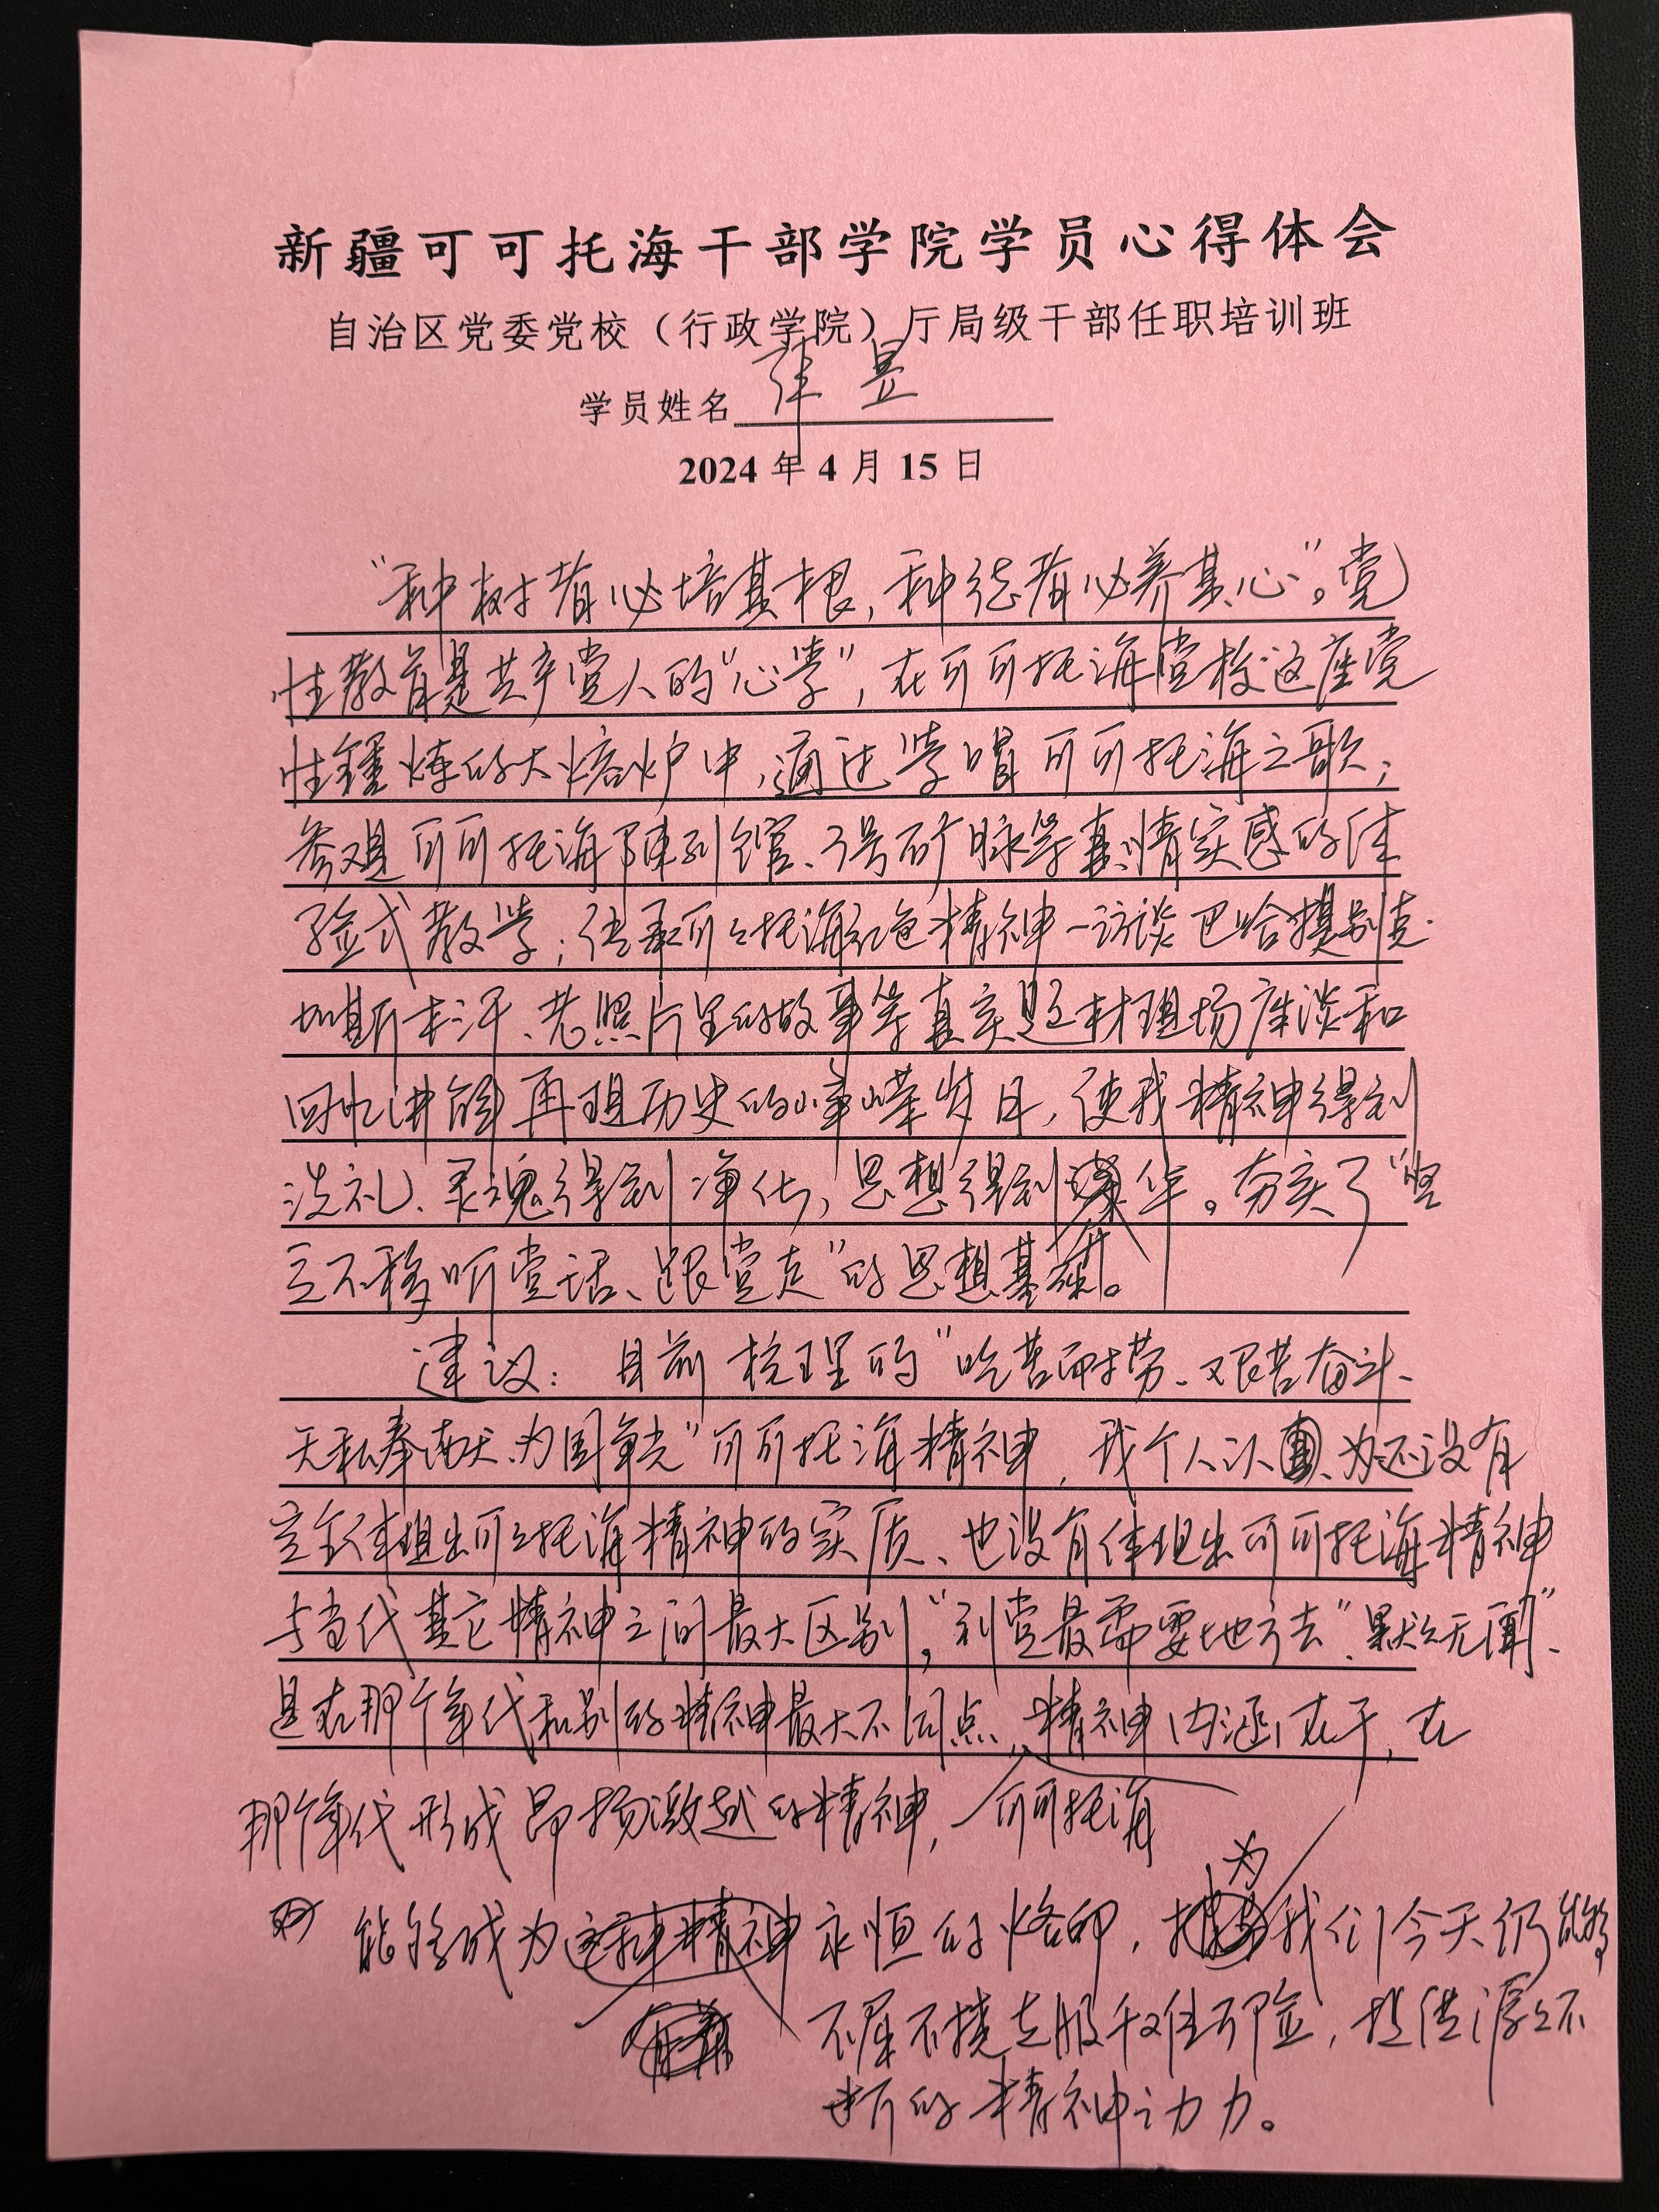 新疆可可托海干部学院学员心得体会
自治区党委党校（行政学院）厅局级干部任职培训班
学员姓名 张昱
2024年4月15日
“种树者必培其根，种德者必养其心”。党
性教育是共产党人的“心学”，在可可托海党校这座党
性锤炼的大熔炉中，通过学唱可可托海之歌；
参观可可托海陈列馆、3号矿脉等真情实感的体
验式教学；传承可可托海红色精神—访谈巴哈提别克·
加斯木汗、老照片里的故事等真实题材现场座谈和
回忆讲解再现历史的峥嵘岁月，使我精神得到
洗礼、灵魂得到净化，思想得到升华。夯实了“坚
定不移听党话、跟党走”的思想基础。
建议：目前梳理的“吃苦耐劳、艰苦奋斗、
无私奉献、为国争光”可可托海精神，我个人认为还没有
完全体现出可可托海精神的实质、也没有体现出可可托海精神
与当代其它精神之间最大区别，“到党最需要地方去”、“默默无闻”、
是在那个年代和别的精神最大不同点，精神内涵在于，在
那个年代形成昂扬激越的精神，可可托海
能够成为永恒的烙印，为我们今天仍能够
不屈不挠克服千难万险，提供源源不
断的精神动力。